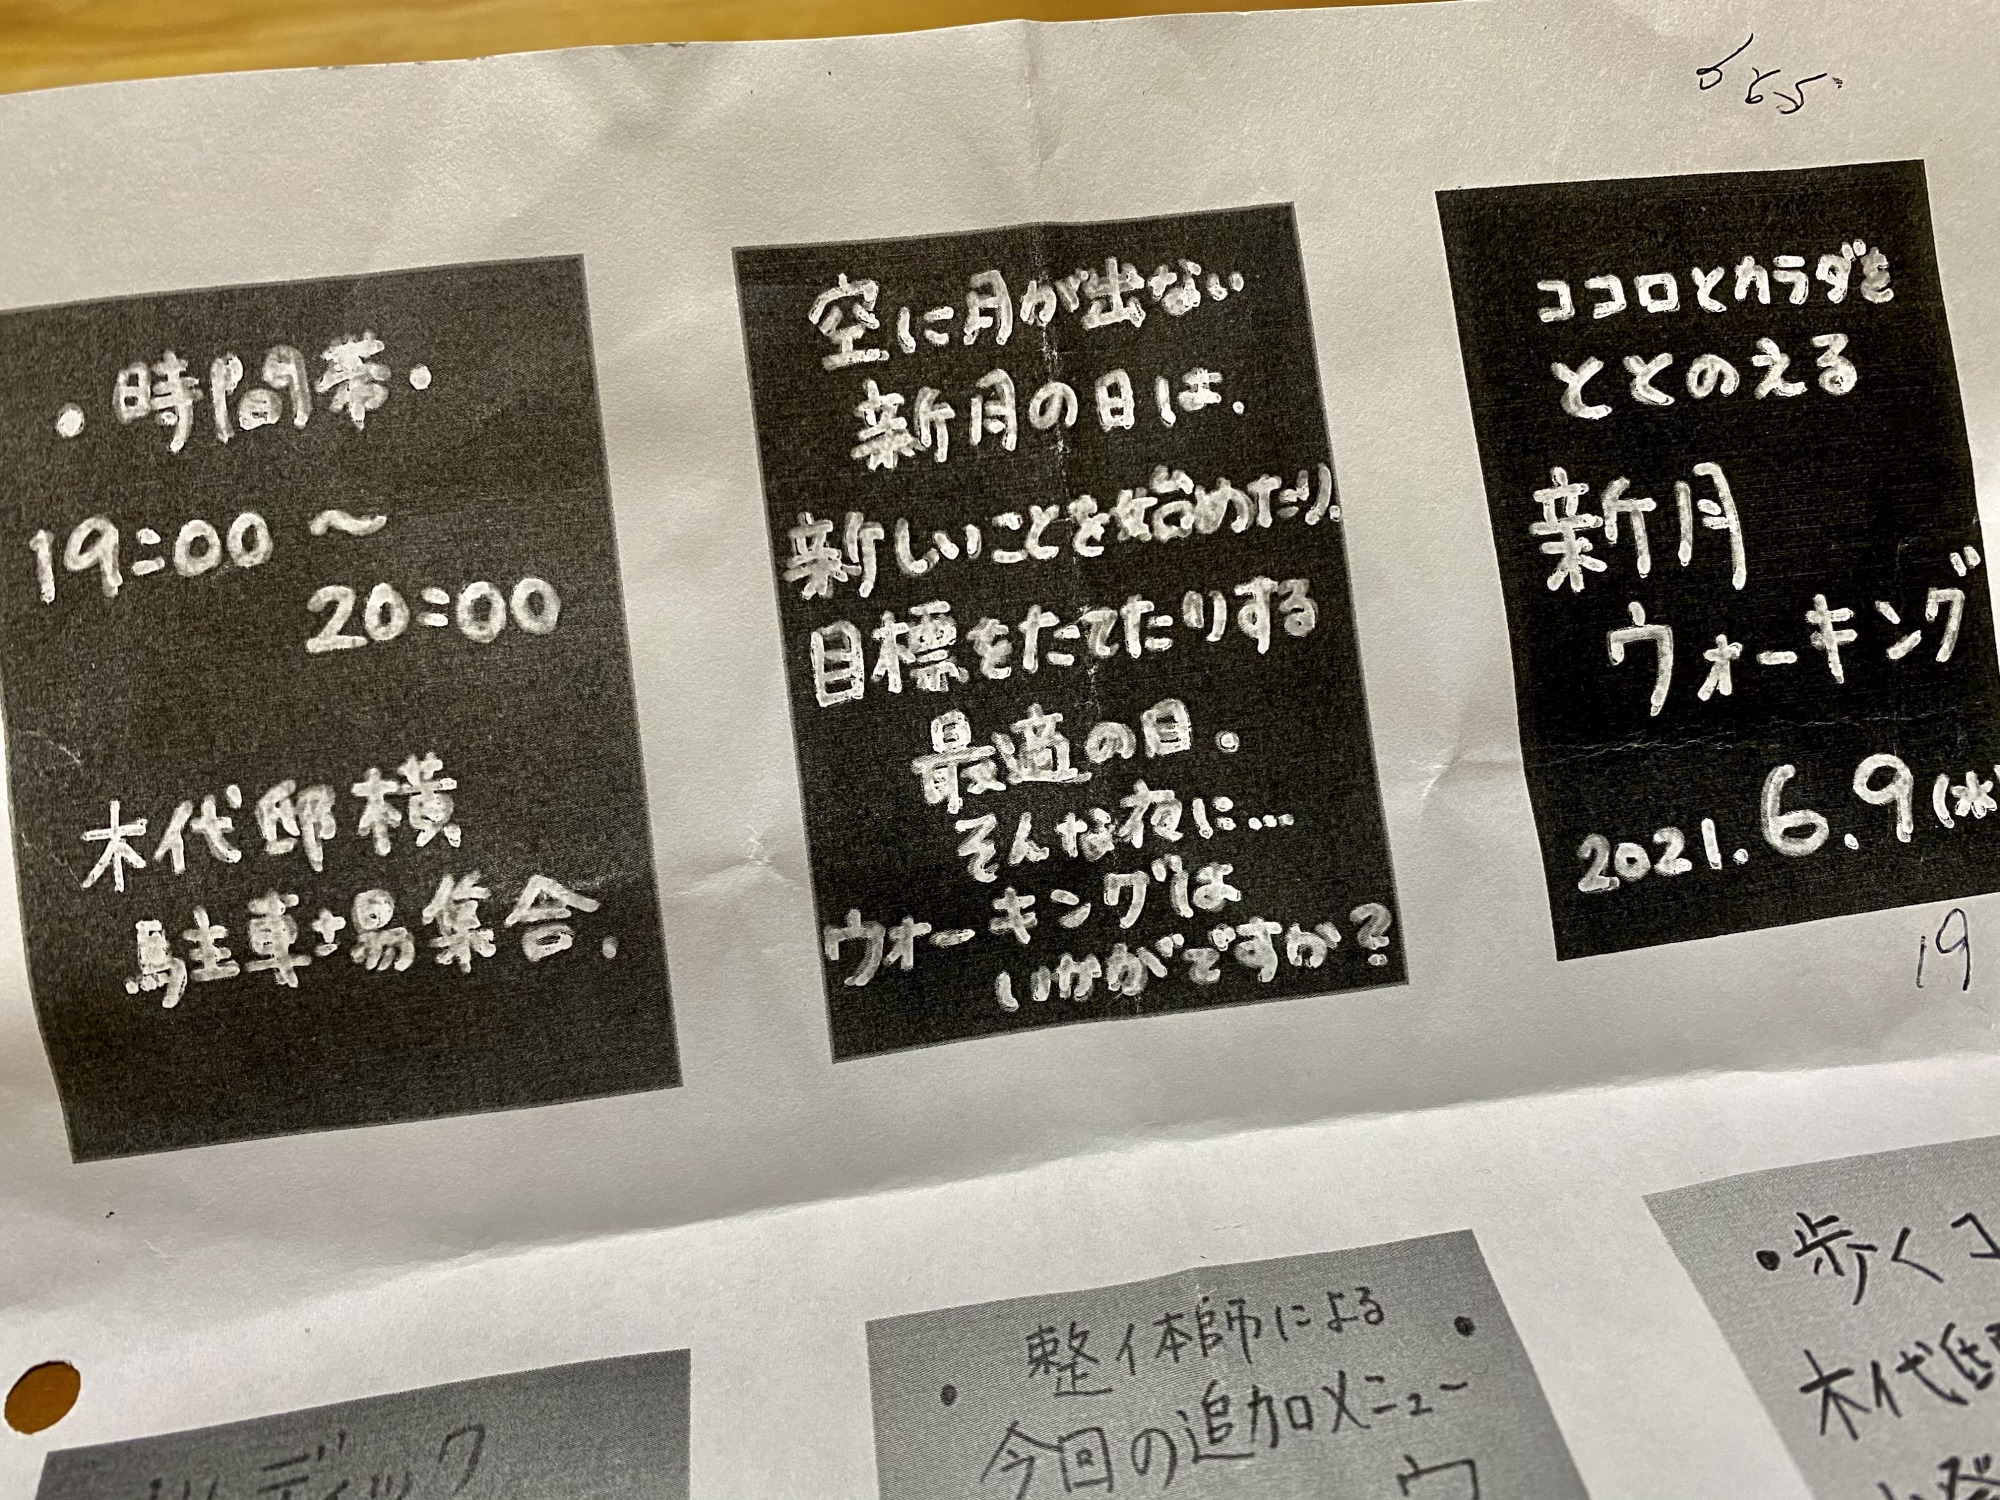 ・時間帯・
19:00〜
20:00
木代邸横
駐車場集合.
空に月が出ない
新月の日は、
新しいことを始めたり、
目標をたてたりする
最適の日。
そんな夜に…
ウォーキングは
いかがですか？
ココロとカラダを
ととのえる
新月
ウォーキング
2021.6.9(水
19
ディック
・整体師による・
今回の追加メニュー
・歩くコ
木代邸